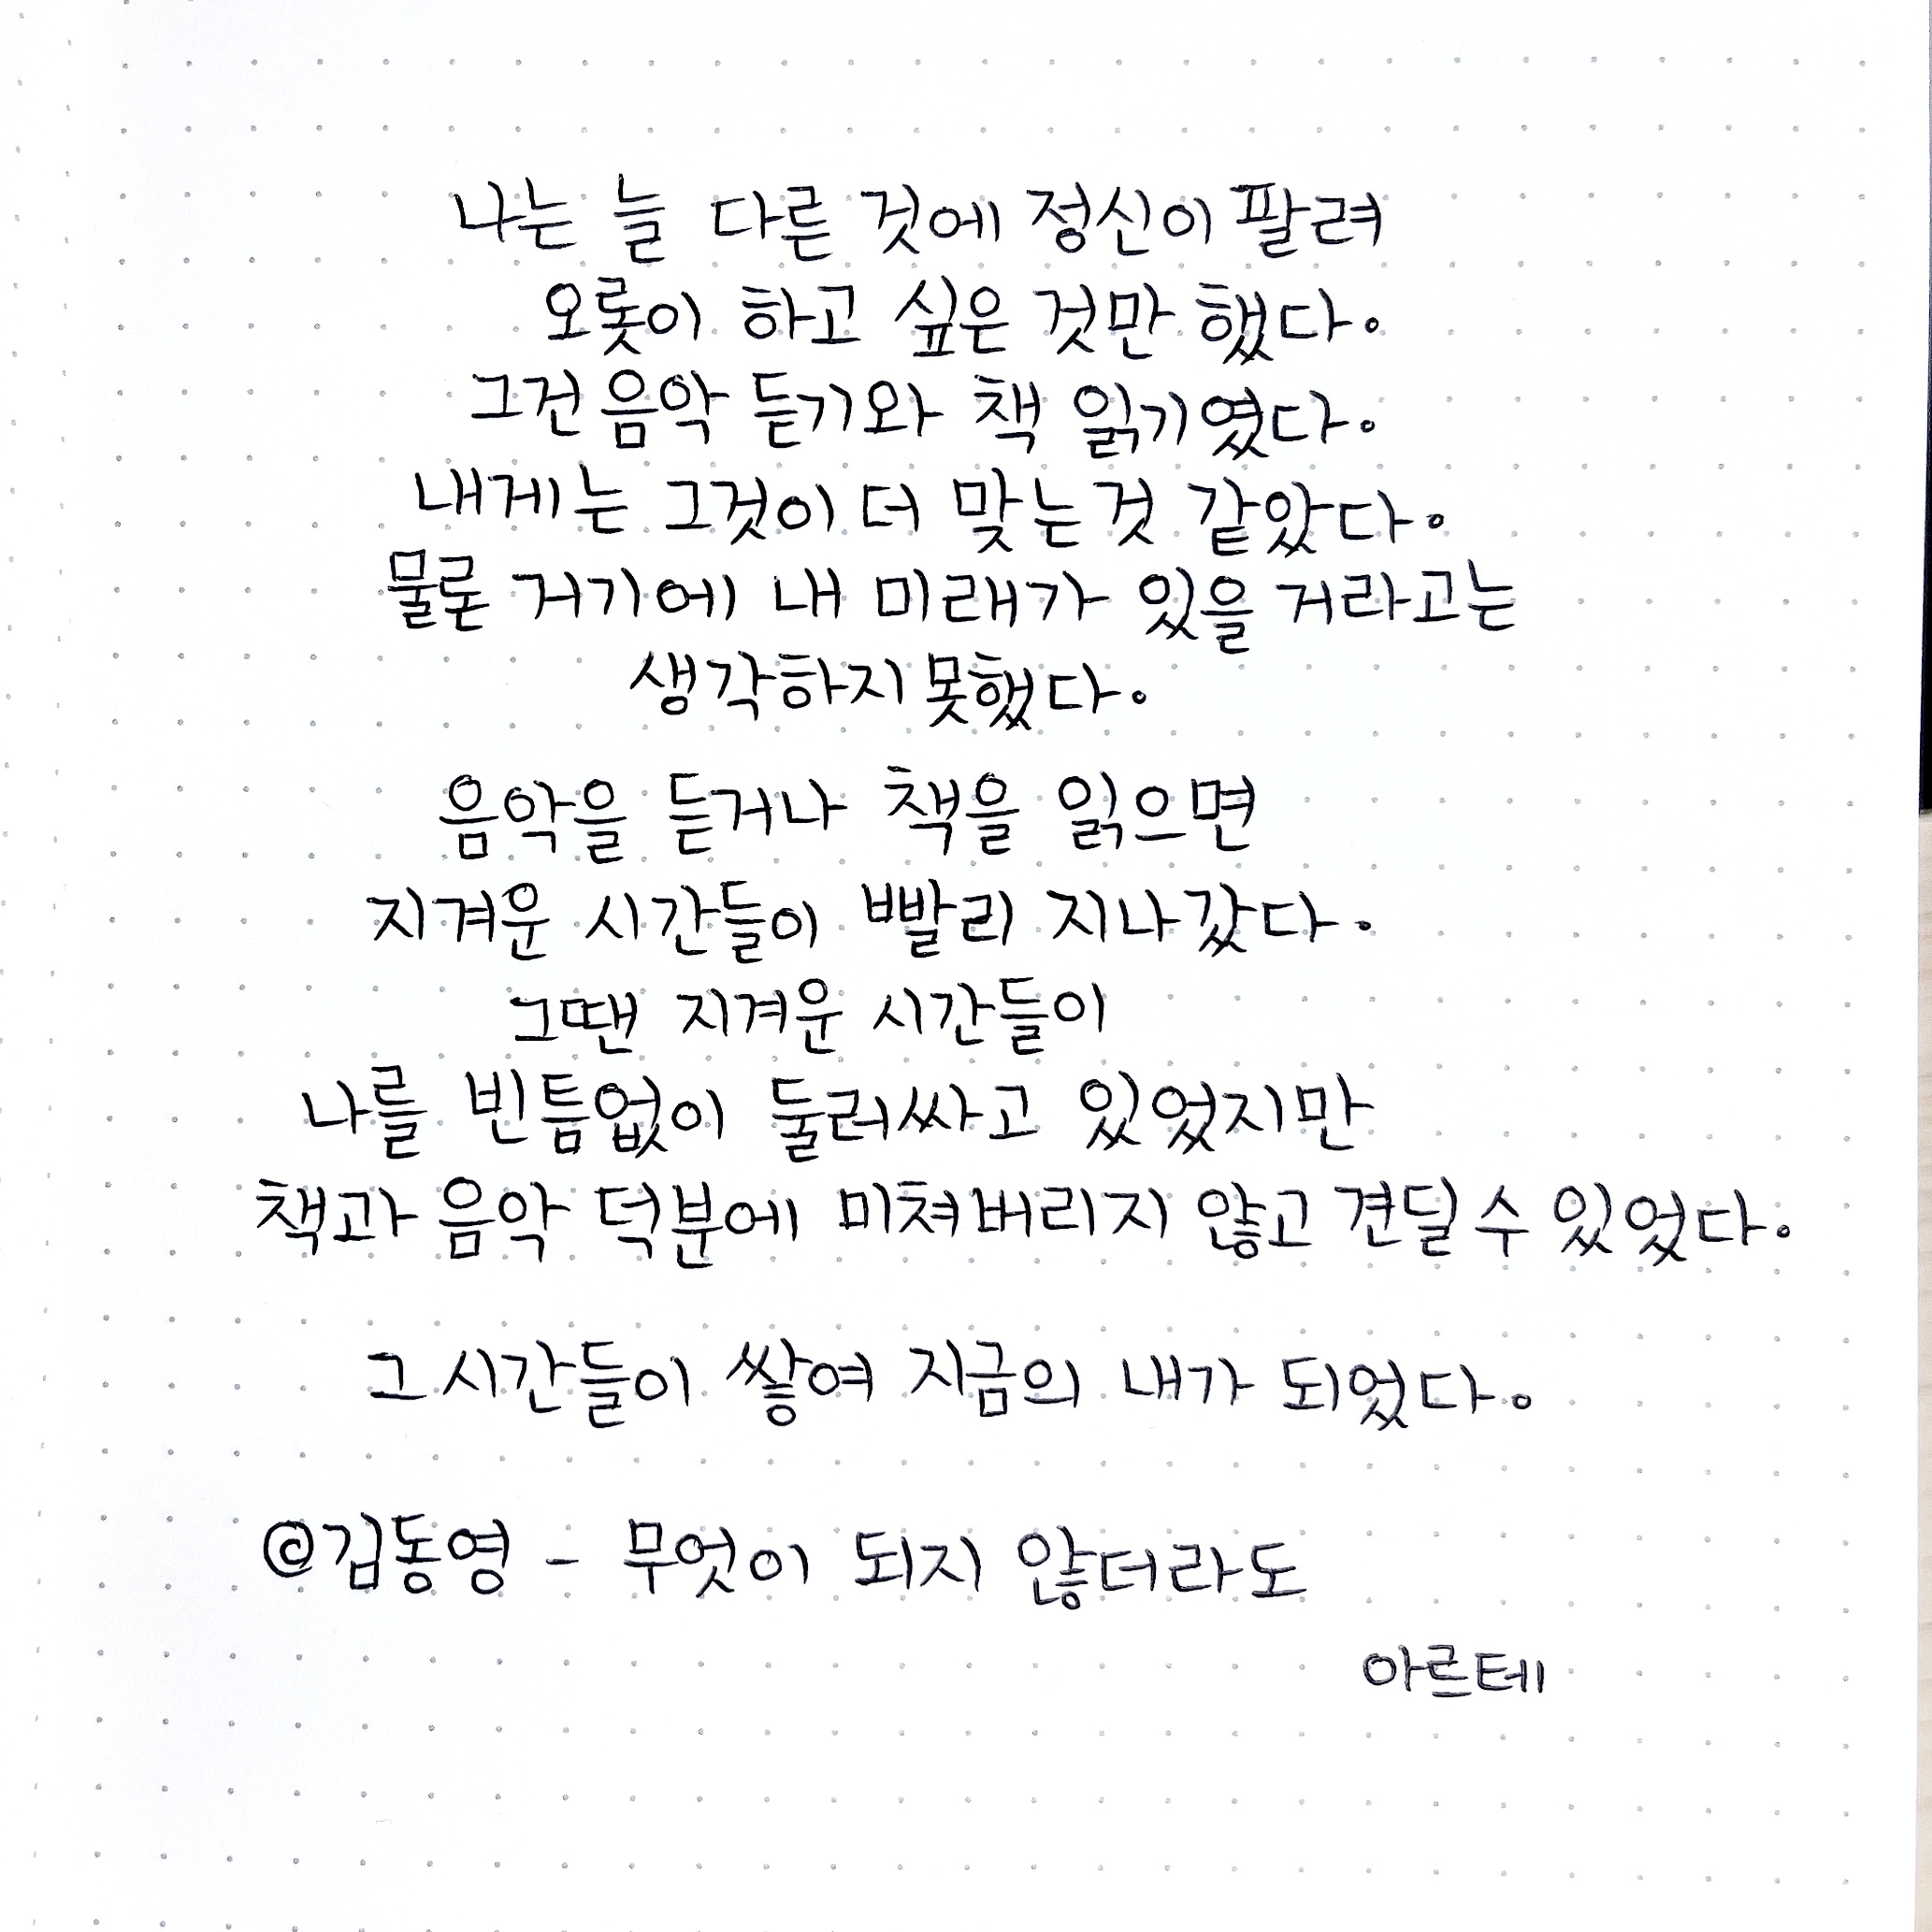 나는 늘 다른 것에 정신이 팔려
오롯이 하고 싶은 것만 했다.
그건 음악 듣기와 책 읽기였다.
내게는 그것이 더 맞는 것 같았다.
물론 거기에 내 미래가 있을 거라고는
생각하지 못했다.
음악을 듣거나 책을 읽으면
지겨운 시간들이 빨리 지나갔다.
그땐 지겨운 시간들이
나를 빈틈없이 둘러싸고 있었지만
책과 음악 덕분에 미쳐버리지 않고 견딜 수 있었다.
그 시간들이 쌓여 지금의 내가 되었다.
@김동영 - 무엇이 되지 않더라도
아르테